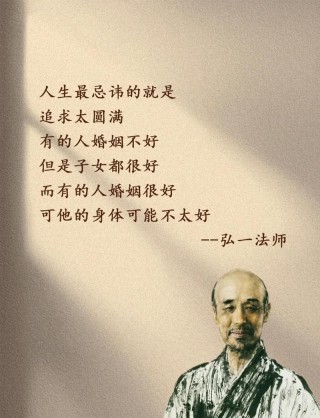 人生最忌讳的就是
追求太圆满
有的人婚姻不好
但是子女都很好
而有的人婚姻很好
可他的身体可能不太好
--弘一法师